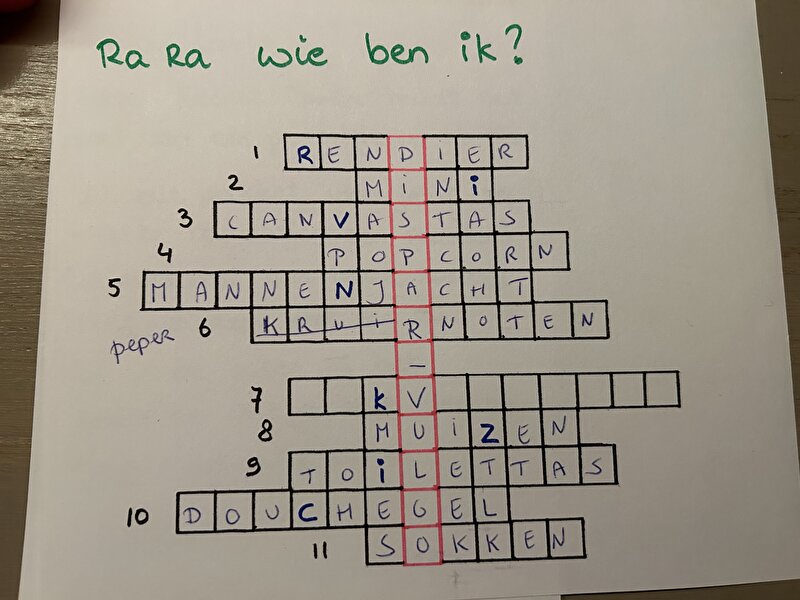 Ra Ra wie ben ik?
1 RENDiER
2 MiNi
3 CANVASTAS
4 POPCORN
5 MANNENJACHT
peper 6 KRUiRNOTEN
_
7 kV
8 MUiZEN
9 TOiLETTAS
10 DOUCHEGEL
11 SOKKEN